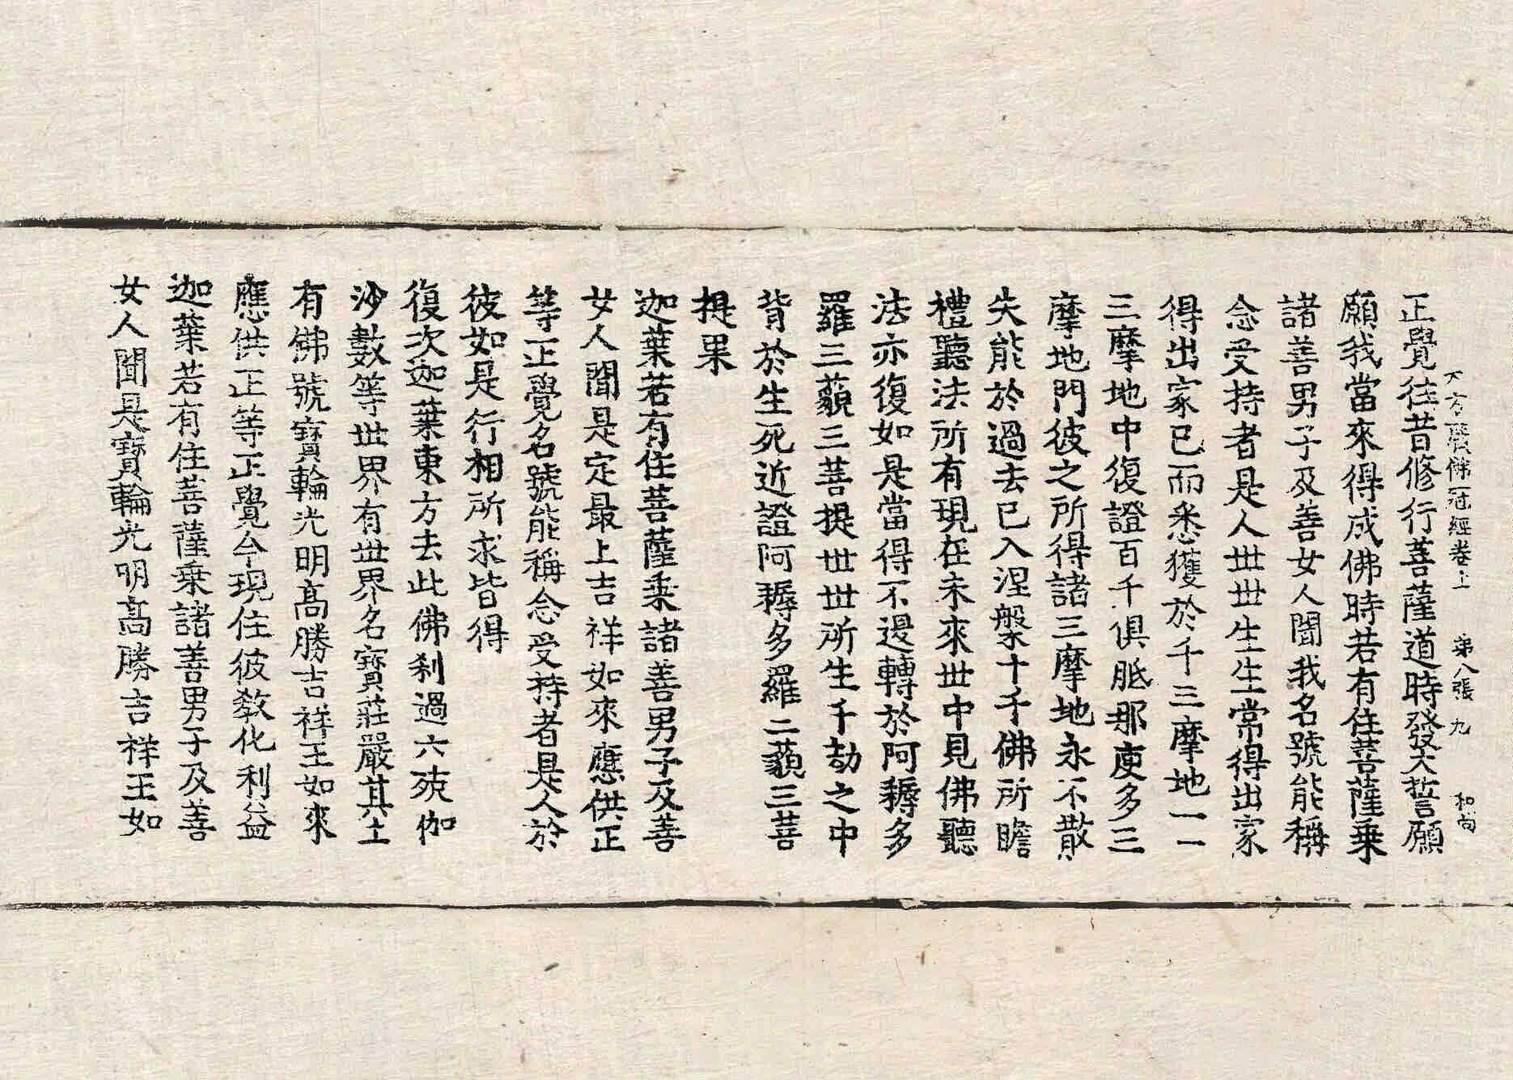 大方廣佛冠經卷上 第八張 九 和尚
正覺往昔修行菩薩道時發大誓願
願我當來得成佛時若有住菩薩乘
諸善男子及善女人聞我名號能稱
念受持者是人世世生生常得出家
得出家已而悉獲於千三摩地一一
三摩地中復證百千俱胝那庾多三
摩地門彼之所得諸三摩地永不散
失能於過去已入涅槃十千佛所瞻
禮聽法所有現在未來世中見佛聽
法亦復如是當得不退轉於阿耨多
羅三藐三菩提世世所生千劫之中
背於生死近證阿耨多羅三藐三菩
提果
迦葉若有住菩薩乘諸善男子及善
女人聞是定最上吉祥如來應供正
等正覺名號能稱念受持者是人於
彼如是行相所求皆得
復次迦葉東方去此佛刹過六殑伽
沙數等世界有世界名寶莊嚴其土
有佛號寶輪光明高勝吉祥王如來
應供正等正覺今現住彼教化利益
迦葉若有住菩薩乘諸善男子及善
女人聞是寶輪光明高勝吉祥王如